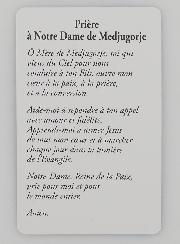 Prière
à Notre Dame de Medjugorje
Ô Mère de Medjugorje, toi qui
viens du Ciel pour nous
conduire à ton Fils, ouvre mon
cœur à la paix, à la prière,
et à la conversion.
Aide-moi à répondre à ton appel
avec amour et fidélité.
Apprends-moi à aimer Jésus
de tout mon cœur et à marcher
chaque jour dans la lumière
de l'Évangile.
Notre Dame, Reine de la Paix,
prie pour moi et pour
le monde entier.
Amen.